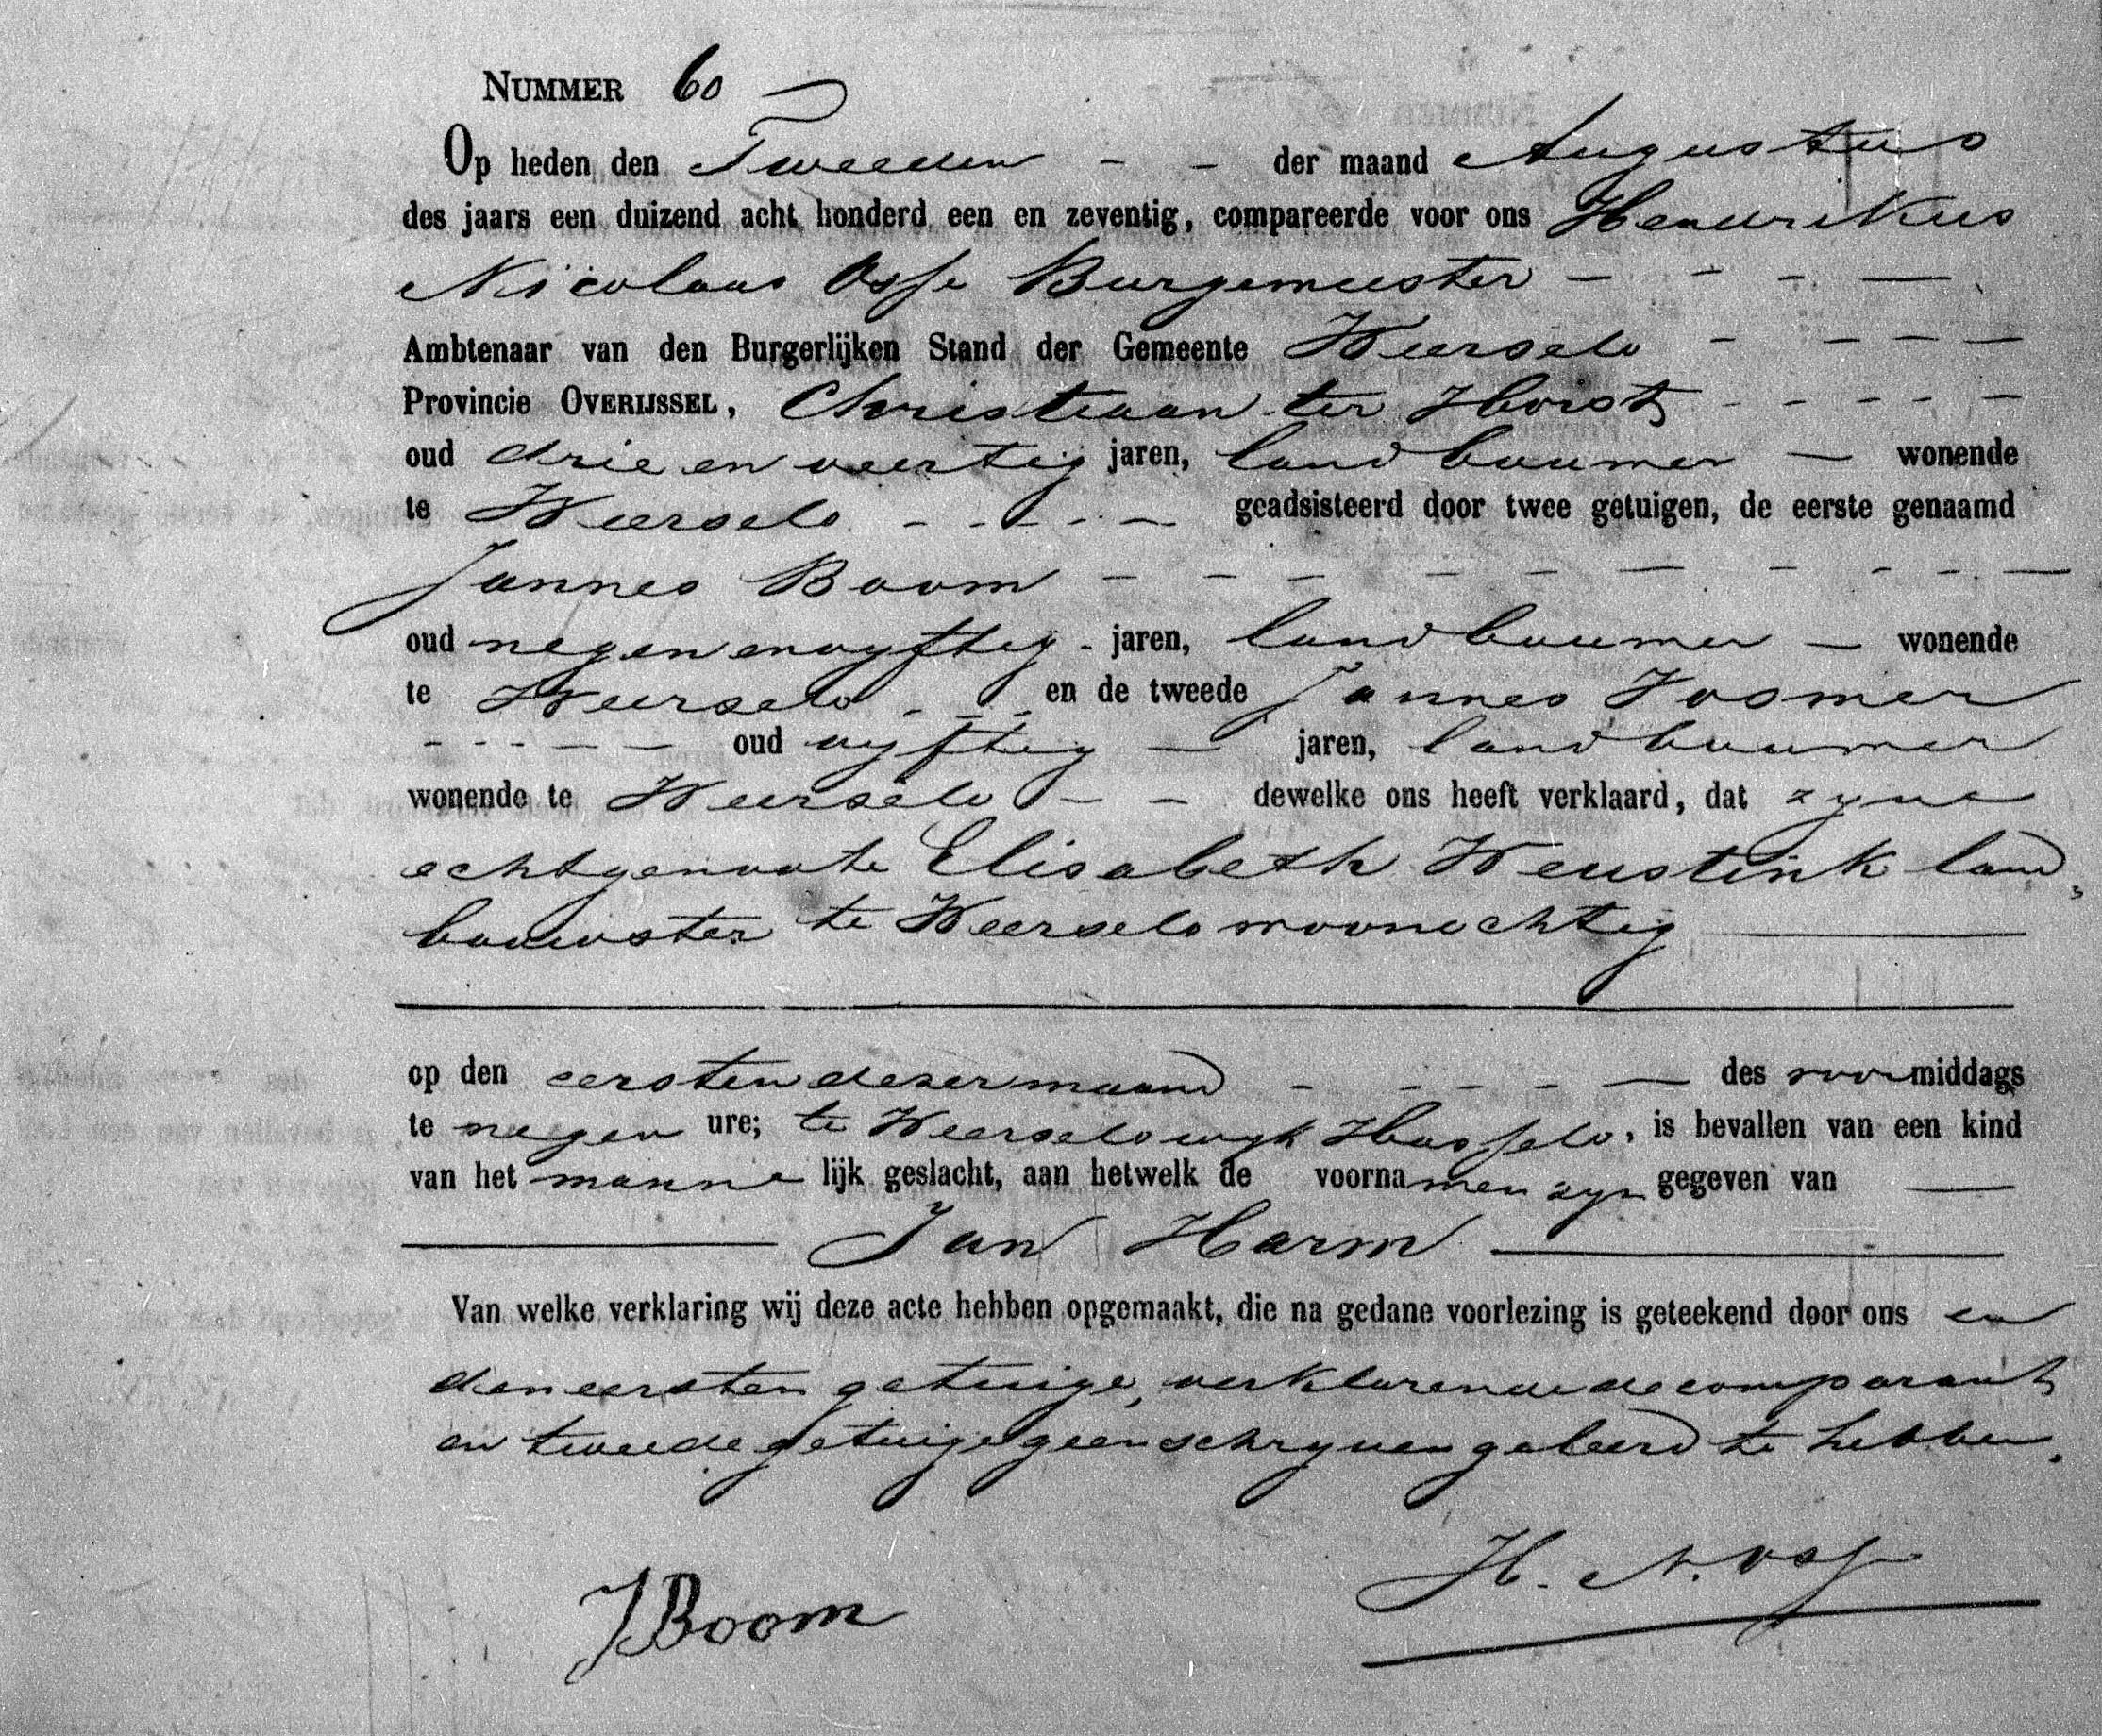 NUMMER 60
Op heden den Tweeden - - der maand Augustus
des jaars een duizend acht honderd een en zeventig, compareerde voor ons Hendrikus
Nicolaas Osse Burgemeester - - - -
Ambtenaar van den Burgerlijken Stand der Gemeente Weerselo - - - -
Provincie OVERIJSSEL, Christiaan ter Horst - - - - -
oud drie en veertig jaren, landbouwer - wonende
te Weerselo - - - - - geadsisteerd door twee getuigen, de eerste genaamd
Jannes Boom - - - - - - - - - -
oud negenenvyftig - jaren, landbouwer - wonende
te Weerselo - - - en de tweede Jannes
- - - - - oud vyftig - jaren, landbouwer
wonende te Weerselo - - dewelke ons heeft verklaard, dat zyne
echtgenoote Elisabeth Weustink land„
bouwster te Weerselo woonachtig
op den eersten dezer maand - - - - - des voormiddags
te negen ure; te Weerselo wyk Hasselo, is bevallen van een kind
van het mannelijk geslacht, aan hetwelk de voornamen zyn gegeven van
Jan Harm
Van welke verklaring wij deze acte hebben opgemaakt, die na gedane voorlezing is geteekend door ons en
den eersten getuige, verklarende de comparant
en tweede getuige geen schryven geleerd te hebben.
H. N. Osse
JBoom